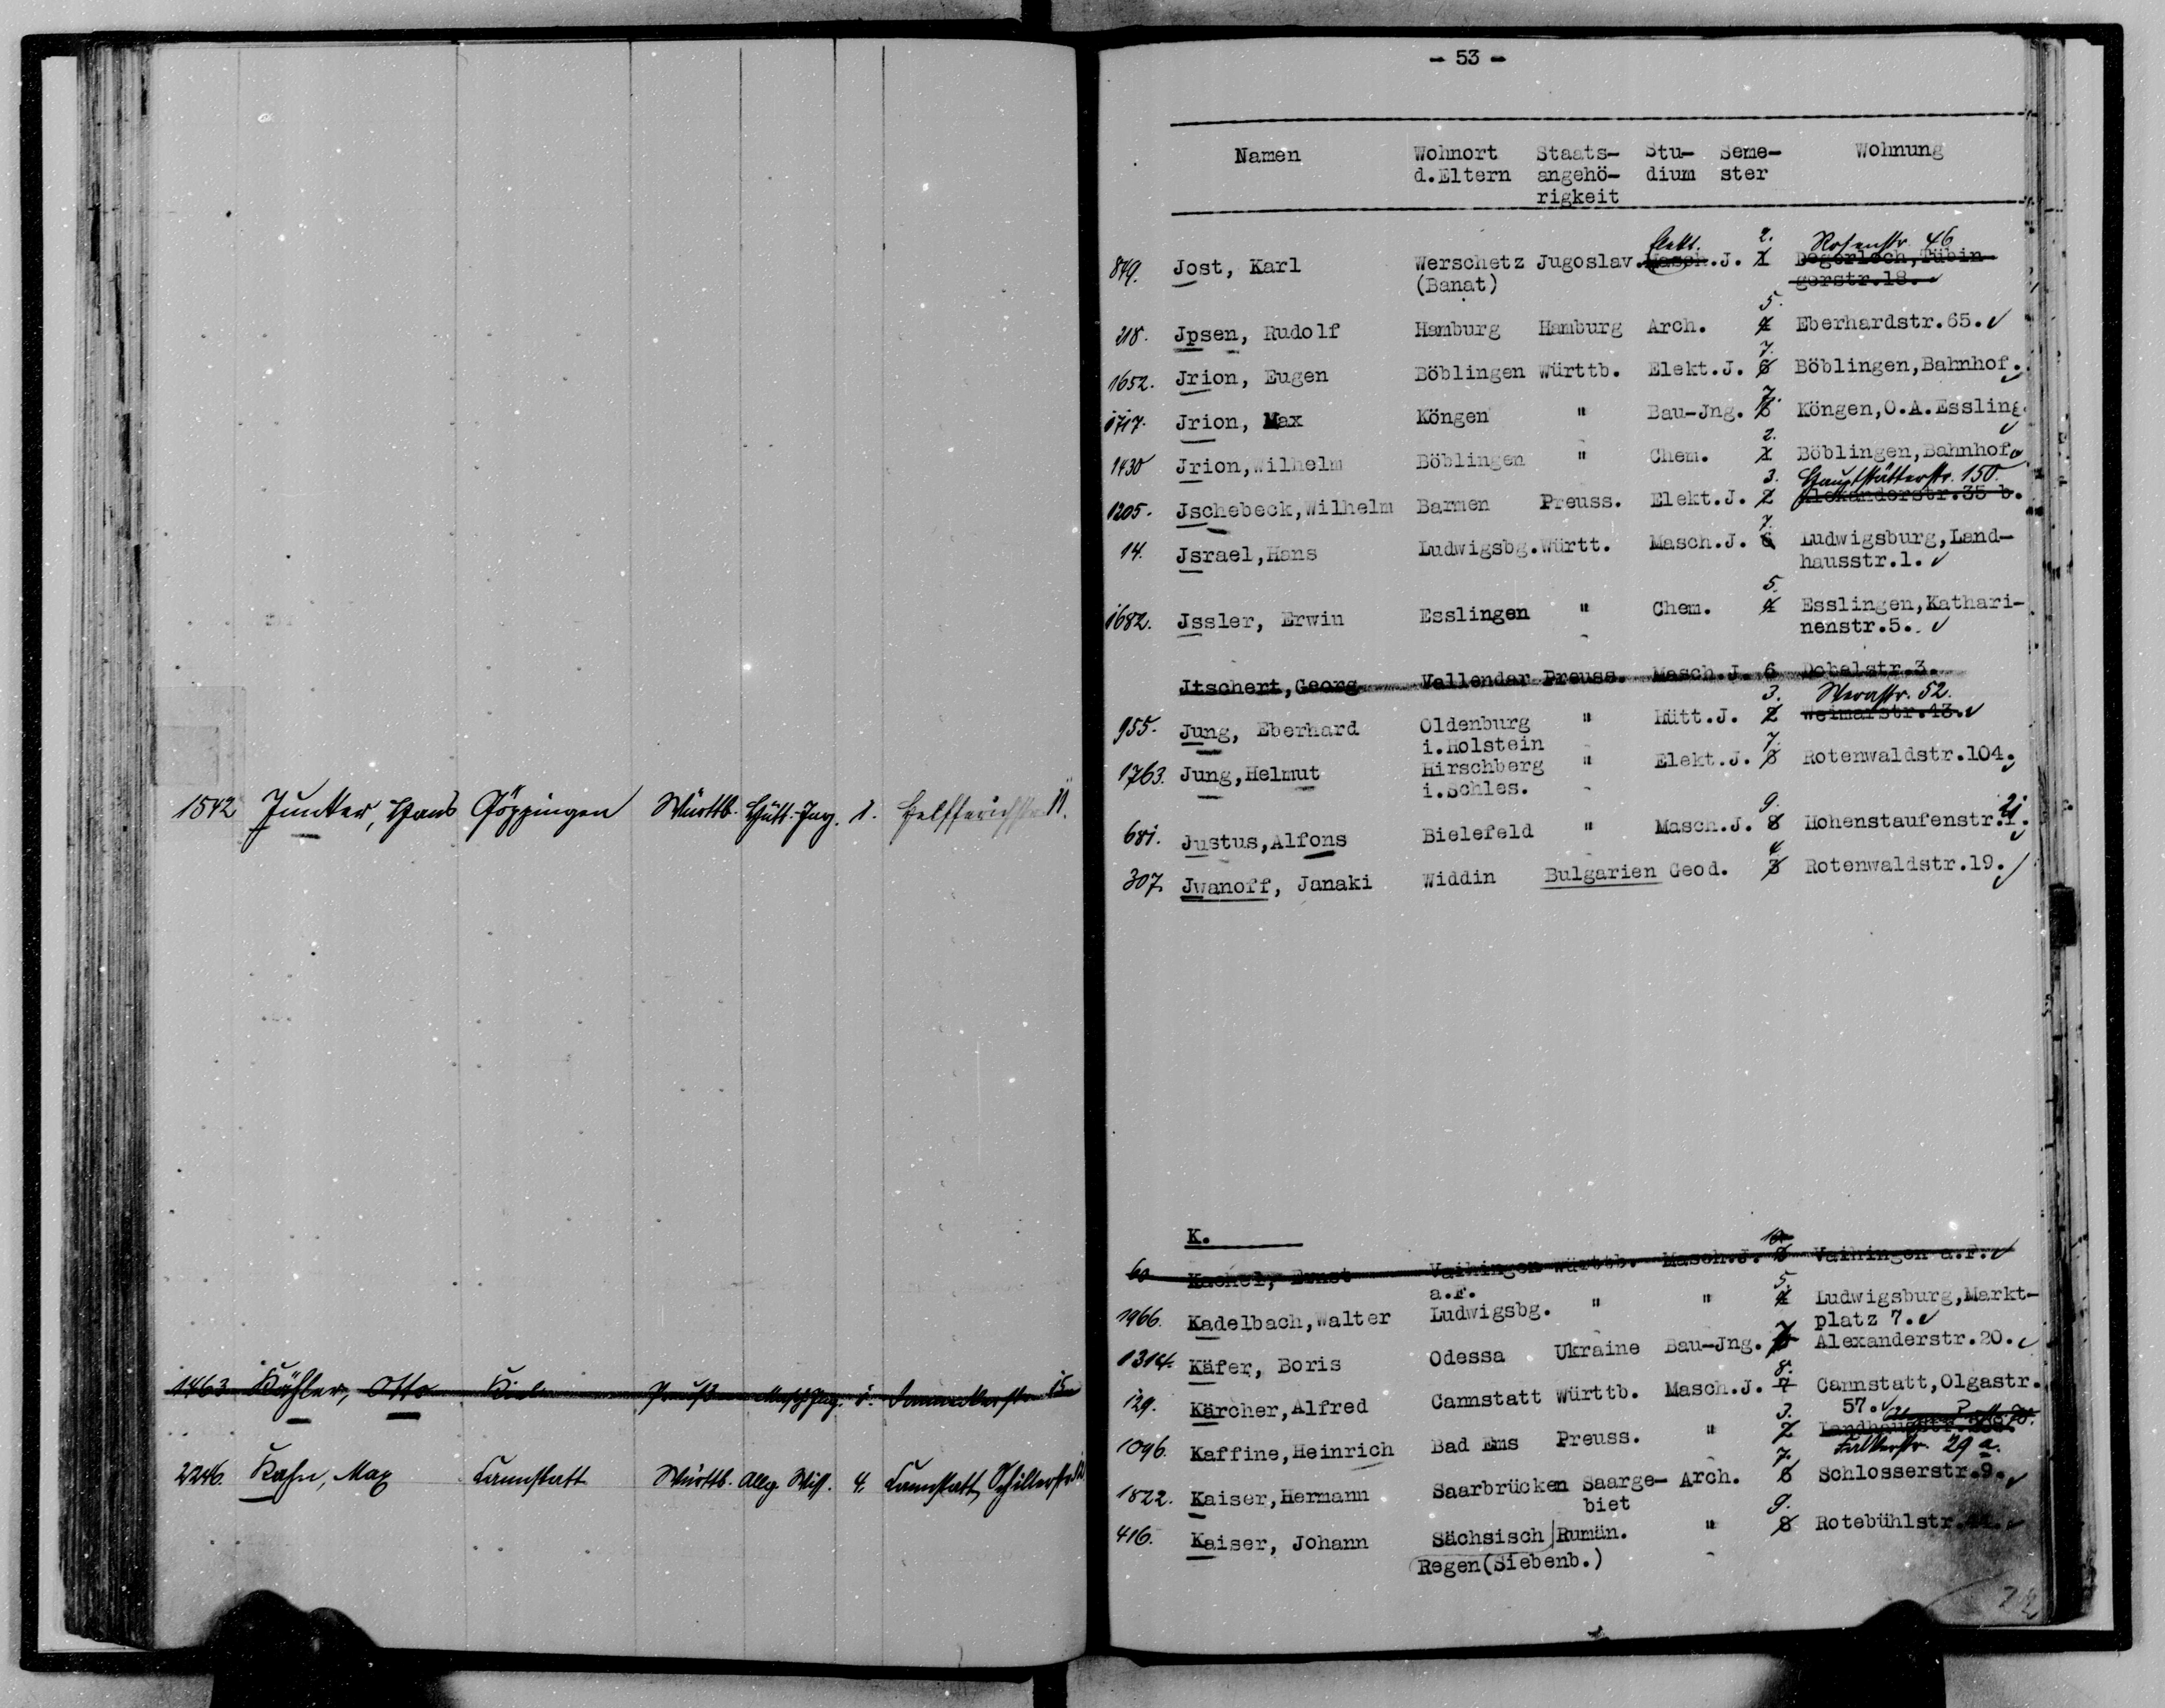 1542 Junker, Hans Göppingen Württb. Hütt.-Ing. 1. Helfferichstr. 11.
1463 Kähler, Otto Kiel Preuß. Masch.Ing. 1. 15
2246. Kahn, Max Cannstatt Württb. Allg. Wiss. 4. Cannstatt, Schillerstr.
- 53 -
Namen Wohnort Staats- Stu- Seme- Wohnung
d.Eltern angehö- dium ster
rigkeit
Elekt. 2. Rosenstr. 46
849. Jost, Karl Werschetz Jugoslav. Masch.J. 1 Degerloch,Tübin-
(Banat) gerstr.18.
5.
218. Jpsen, Rudolf Hamburg Hamburg Arch. 4 Eberhardstr.65.
7.
1652. Jrion, Eugen Böblingen Württb. Elekt.J. 6 Böblingen,Bahnhof.
7.
1717. Jrion, Max Köngen " Bau-Jng. 6 Köngen,O.A.Essling.
2.
1430 Jrion,Wilhelm Böblingen " Chem. 1 Böblingen,Bahnhof
3. Hauptstätterstr. 150.
1205. Jschebeck,Wilhelm Barmen Preuss. Elekt.J. 2 Alexanderstr.35 b.
7.
14. Jsrael,Hans Ludwigsbg.Württ. Masch.J. 6 Ludwigsburg,Land-
hausstr.1.
5.
1682. Jssler, Erwin Esslingen " Chem. 4 Esslingen,Kathari-
nenstr.5.
Jtschert,Georg Vallendar Preuss. Masch.J. 6 Dobelstr.3.
3. Werastr. 52.
955. Jung, Eberhard Oldenburg " Hütt.J. 2 Weimarstr.43.
i.Holstein
7.
1763. Jung,Helmut Hirschberg " Elekt.J. 6 Rotenwaldstr.104.
i.Schles.
9. 21
681. Justus,Alfons Bielefeld " Masch.J. 8 Hohenstaufenstr.1.
4
307. Jwanoff, Janaki Widdin Bulgarien Geod. 3 Rotenwaldstr.19.
K.
10
60 Kachel, Ernst Vaihingen Württb. Masch.J. Vaihingen a.F.
a.F.
5.
1966. Kadelbach,Walter Ludwigsbg. " " 4 Ludwigsburg,Markt-
platz 7.
7
1314. Käfer, Boris Odessa Ukraine Bau-Jng. 6 Alexanderstr.20.
8.
129. Kärcher,Alfred Cannstatt Württb. Masch.J. 7 Cannstatt,Olgastr.
57.
3.
1096. Kaffine,Heinrich Bad Ems Preuss. " 2
Falkertstr. 29 a.
7.
1822. Kaiser,Hermann Saarbrücken Saarge- Arch. 6 Schlosserstr.9.
biet
9.
416. Kaiser, Johann Sächsisch Rumän. " 8 Rotebühlstr.
Regen(Siebenb.)